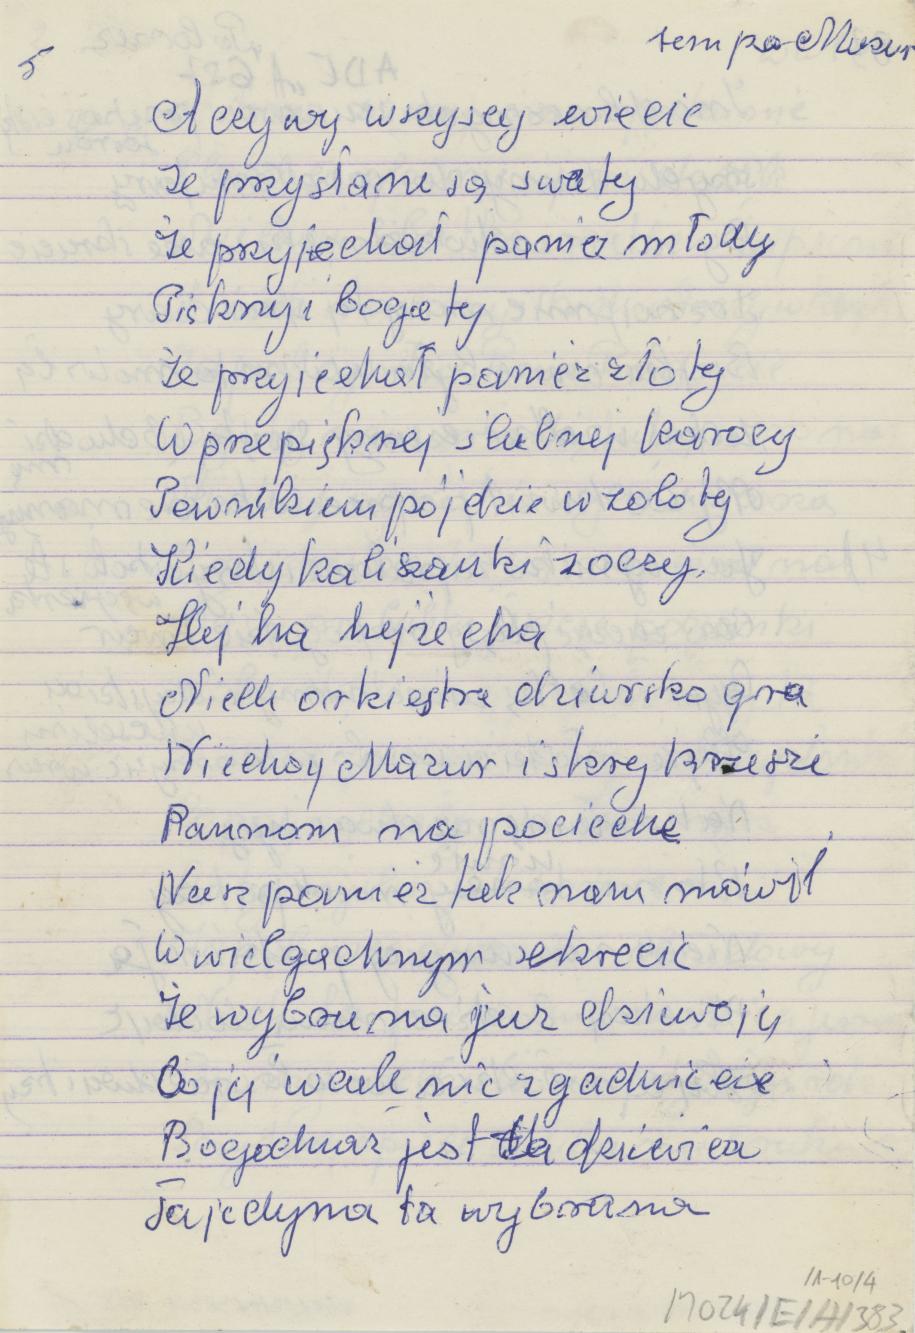 5
tempo Mazur
A czy wy wszyscy wiecie
Że przysłane są swaty
Że przyjechał panicz młody
Piękny i bogaty
Że przyjechał panicz złoty
W przepięknej slubnej karocy
Pewnikiem pójdzie w zaloty
Kiedy kaliszanki zoczy.
Hej ha hejże cha
Niech orkiestra dziarsko gra
Niechaj Mazur iskry krzesze
Pannom na pocieche
Nasz panicz tak nam mówił
W wielgachnym sekrecie
Że wybrana już dziewoją
Co jej wcale nie zgadniecie
Bogdanaz jest ta dziewica
Ta jedyna ta wybrana
11-10/4
MOZK/E/A/383